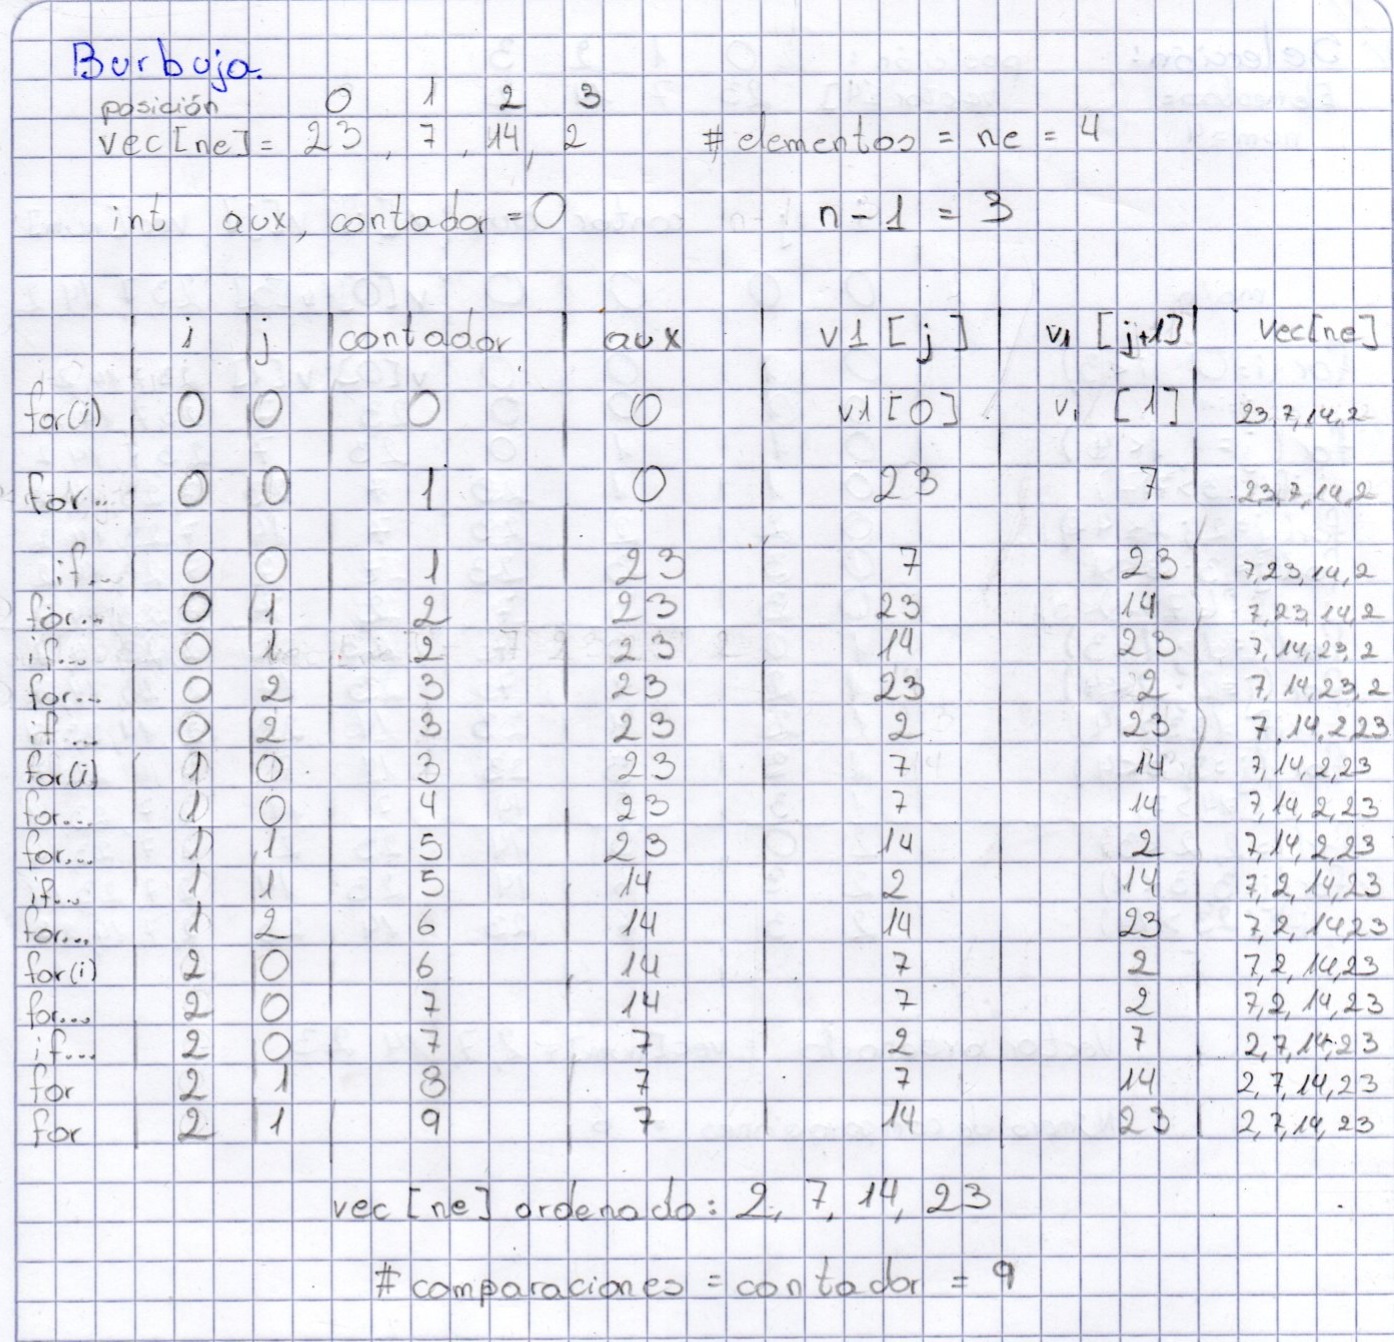 Burbuja.
posición 0 1 2 3
vec[ne] = 23, 7, 14, 2 # elementos = ne = 4
int aux, contador = 0 n - 1 = 3
i j contador aux v1 [j] v1 [j+1] vec[ne]
for(i) 0 0 0 0 v1[0] v1 [1] 23,7,14,2
for... 0 0 1 0 23 7 23,7,14,2
if... 0 0 1 23 7 23 7,23,14,2
for... 0 1 2 23 23 14 7,23,14,2
if... 0 1 2 23 14 23 7,14,23,2
for... 0 2 3 23 23 2 7,14,23,2
if... 0 2 3 23 2 23 7,14,2,23
for(i) 1 0 3 23 7 14 7,14,2,23
for... 1 0 4 23 7 14 7,14,2,23
for... 1 1 5 23 14 2 7,14,2,23
if... 1 1 5 14 2 14 7,2,14,23
for... 1 2 6 14 14 23 7,2,14,23
for(i) 2 0 6 14 7 2 7,2,14,23
for... 2 0 7 14 7 2 7,2,14,23
if... 2 0 7 7 2 7 2,7,14,23
for 2 1 8 7 7 14 2,7,14,23
for 2 1 9 7 14 23 2,7,14,23
vec [ne] ordenado: 2, 7, 14, 23
# comparaciones = contador = 9